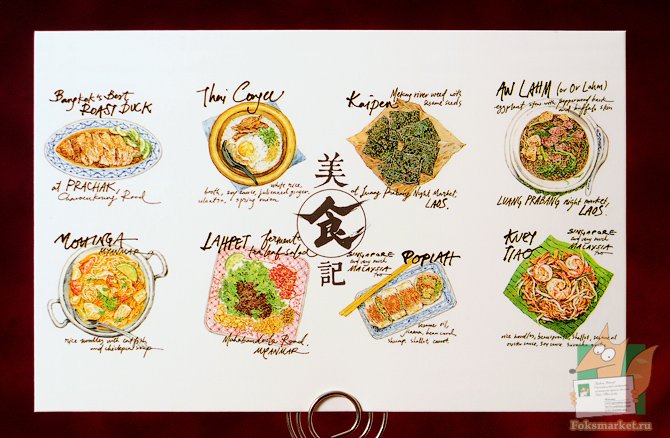 Bangkok's Best
ROAST DUCK
at PRACHAK,
Charoenkrung Road
Thai Congee
white rice,
broth, soy sauce, julienned ginger,
cilantro, & spring onion
Kaipen
Mekong river weed with
sesame seeds
at Luang Prabang Night Market,
LAOS.
AW LAHM (or Or Lahm)
eggplant stew with pepperwood bark
and buffalo skin
LUANG PRABANG night market,
LAOS.
美食記
MOHINGA
MYANMAR
rice noodles with catfish
and chickpea soup
LAHPET ferment
tea leaf salad
Mahabandoola Road,
MYANMAR
SINGAPORE
and very much
MALAYSIA
too
POPIAH
sesame oil,
bean curd,
shrimp, shallot, carrot
KUEY
TIAO
SINGAPORE
and very much
MALAYSIA
too
rice noodles, bean sprouts, shallot,
oyster sauce, soy sauce
Foksmarket.ru